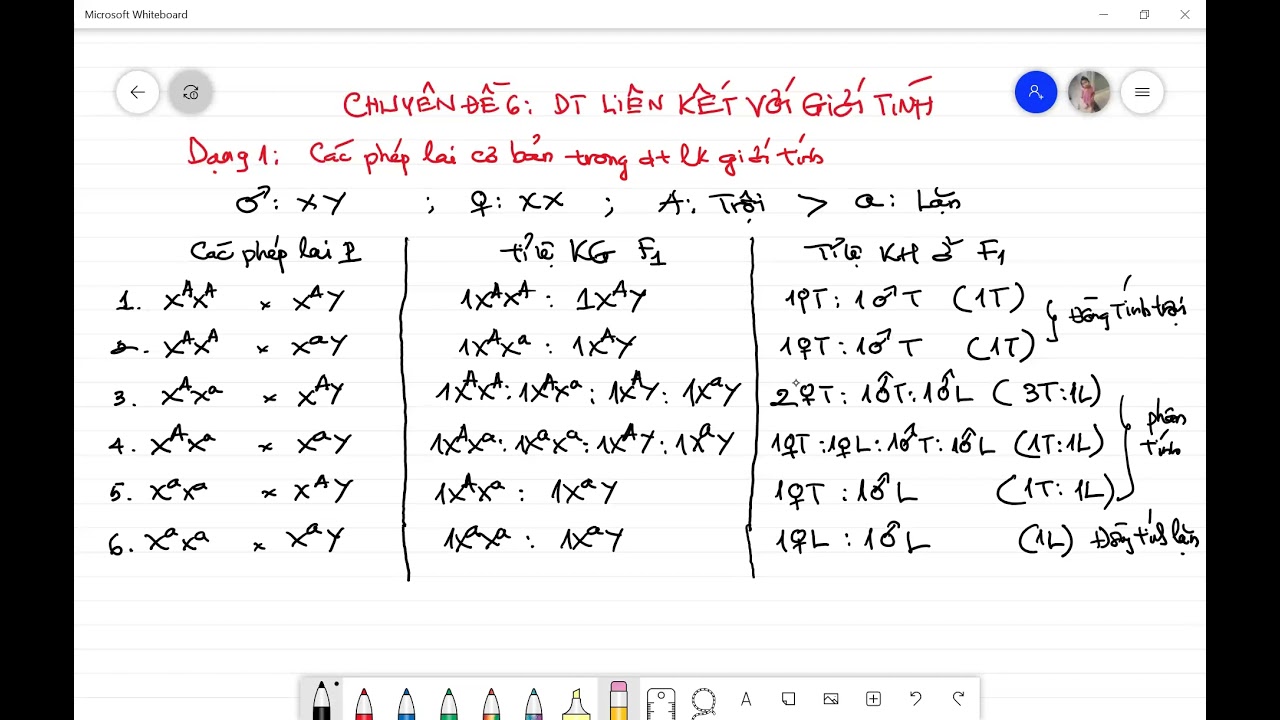 Microsoft Whiteboard
CHUYÊN ĐỀ 6: DT LIÊN KẾT VỚI GIỚI TÍNH
Dạng 1: Các phép lai cơ bản trong dt lk giới tính
♂: XY ; ♀: XX ; A: Trội > a: Lặn
Các phép lai P Tỉ lệ KG F₁ Tỉ lệ KH ở F₁
1. XᴬXᴬ × XᴬY 1XᴬXᴬ : 1XᴬY 1♀T : 1♂T (1T) Đồng tính trội
2. XᴬXᴬ × XᵃY 1XᴬXᵃ : 1XᴬY 1♀T : 1♂T (1T)
3. XᴬXᵃ × XᴬY 1XᴬXᴬ : 1XᴬXᵃ : 1XᴬY : 1XᵃY 2♀T : 1♂T : 1♂L (3T:1L) phân tính
4. XᴬXᵃ × XᵃY 1XᴬXᵃ : 1XᵃXᵃ : 1XᴬY : 1XᵃY 1♀T : 1♀L : 1♂T : 1♂L (1T:1L)
5. XᵃXᵃ × XᴬY 1XᴬXᵃ : 1XᵃY 1♀T : 1♂L (1T:1L)
6. XᵃXᵃ × XᵃY 1XᵃXᵃ : 1XᵃY 1♀L : 1♂L (1L) Đồng tính lặn
A